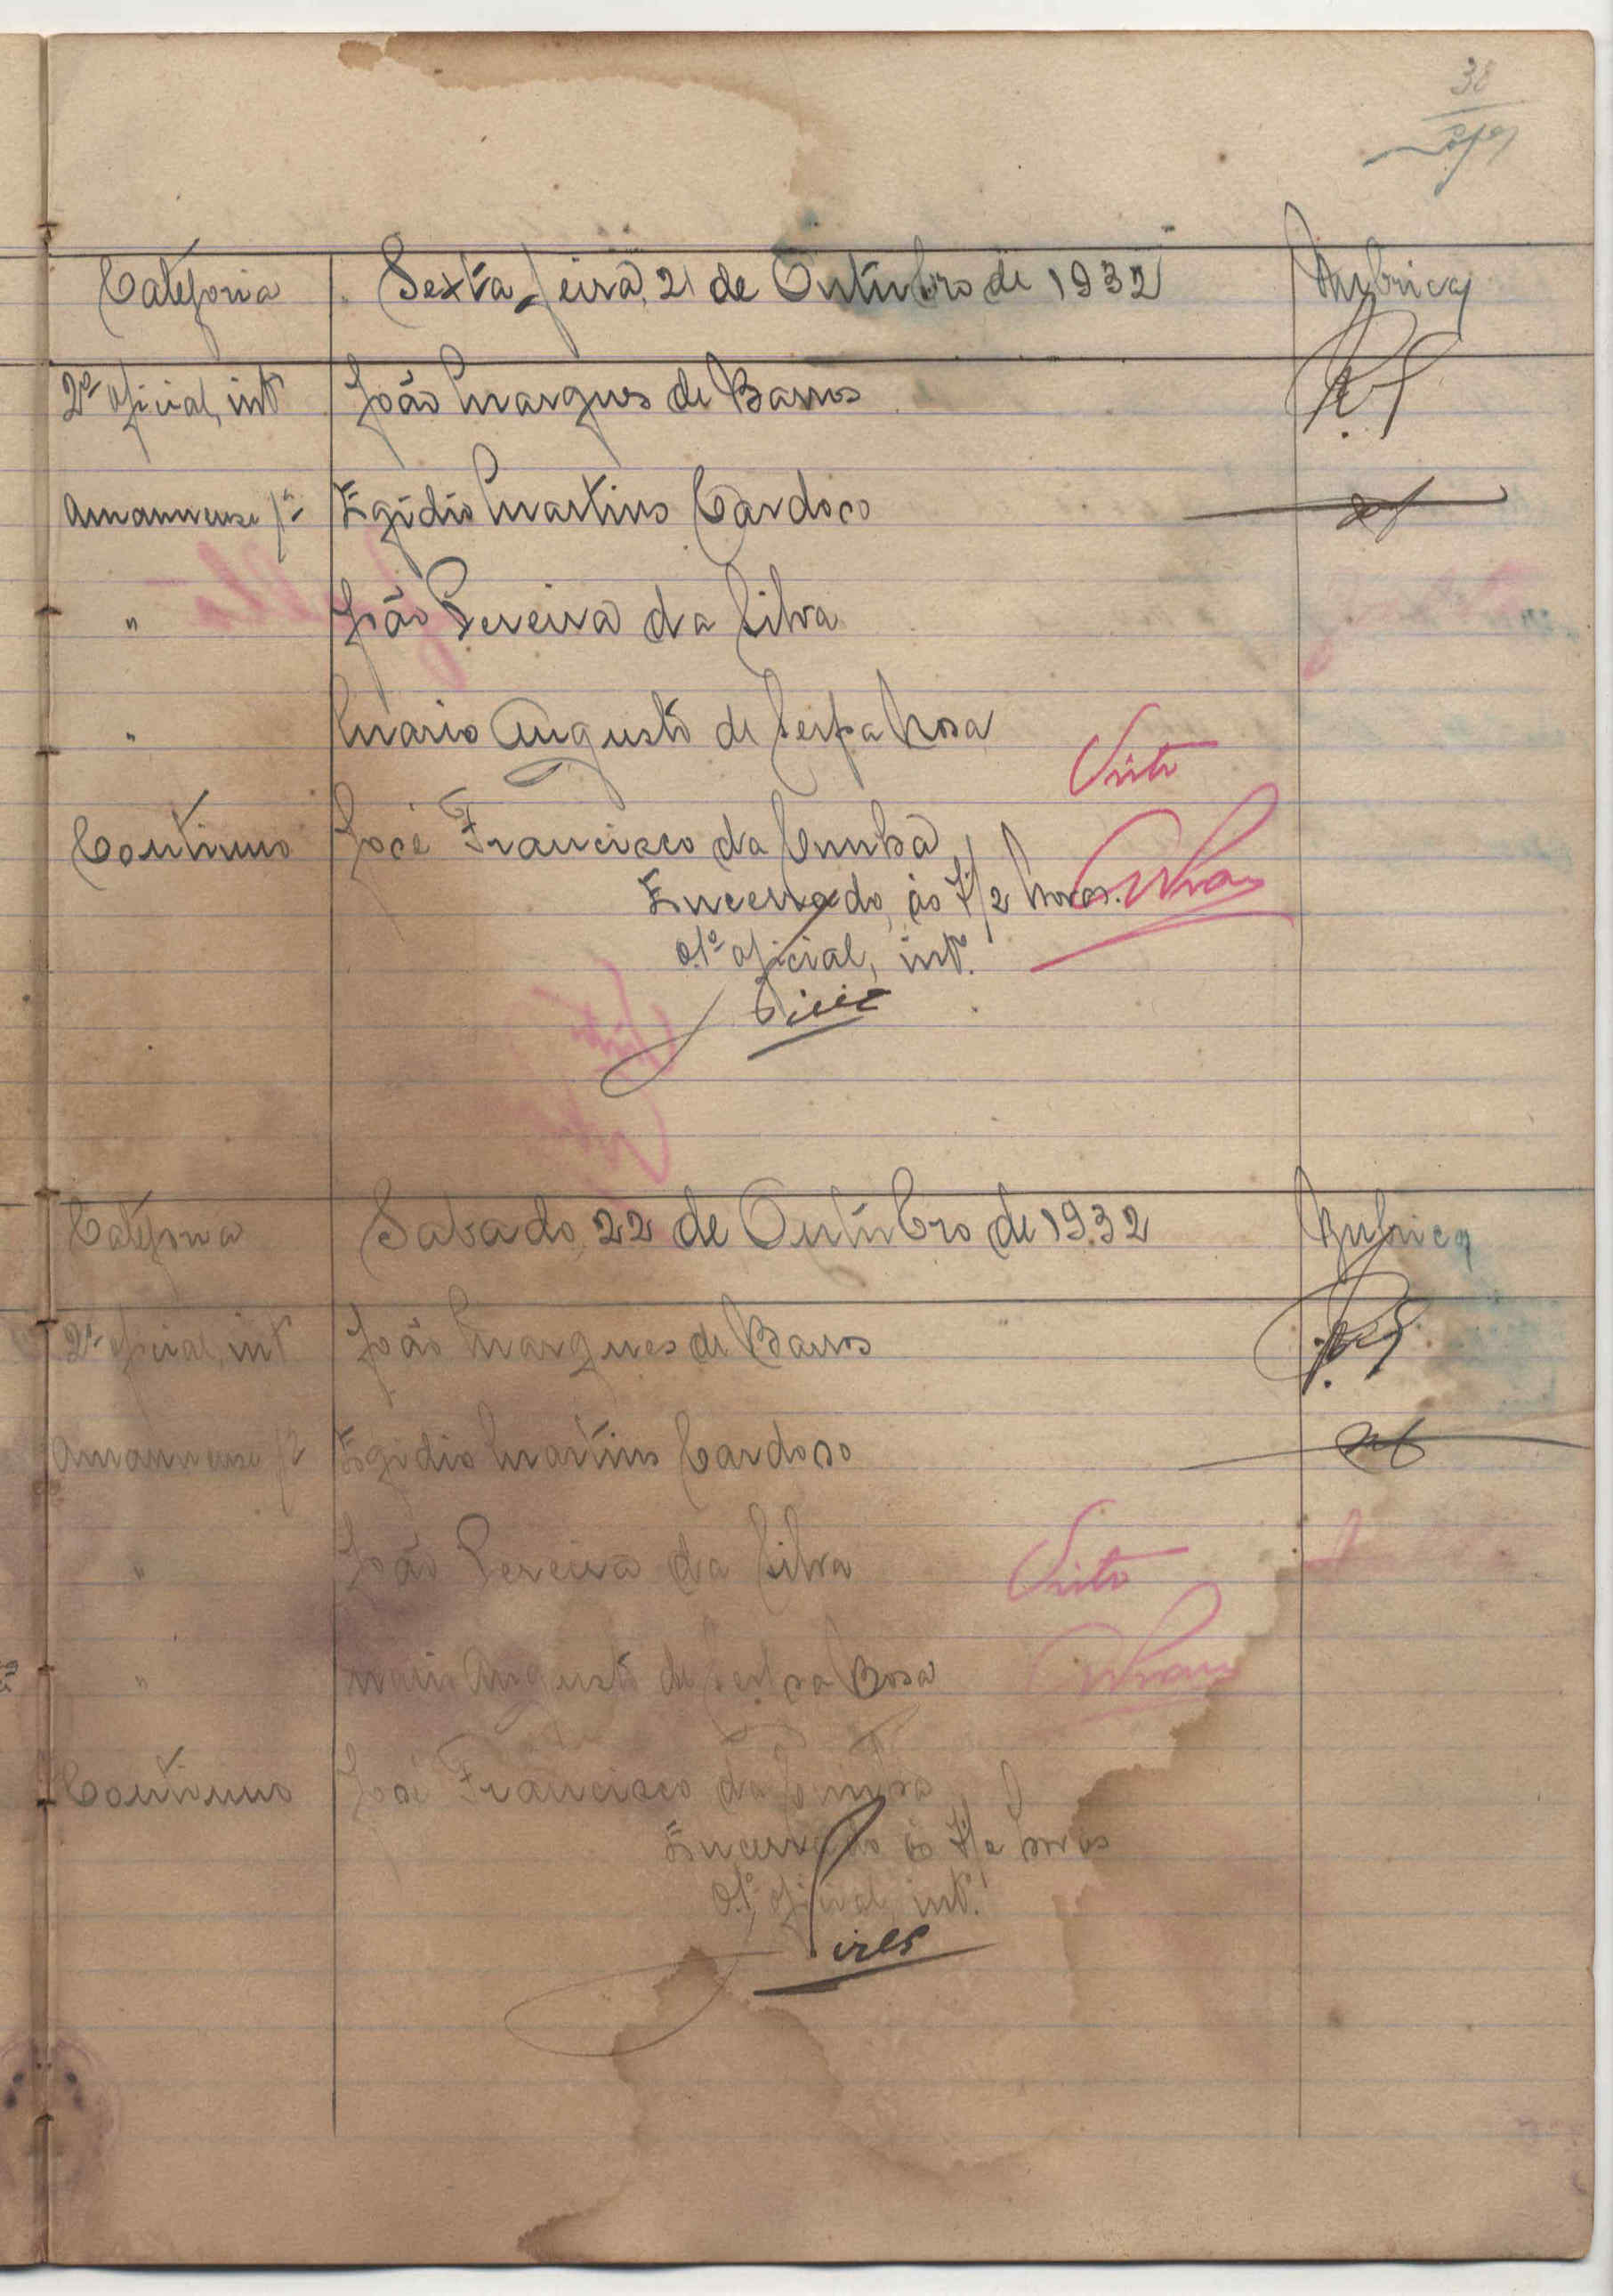 38
Categoria Sexta feira, 21 de Outubro de 1932 Rubrica
2º oficial, intº João Marques de Barros
Amanuense Egídio Martins Cardoso
" João Pereira da Silva
" Mario Augusto de Serpa Rosa
Visto
Contínuo José Francisco da Cunha
Encerrado, ás 7 1/2 horas.
O 1º oficial, intº.
Pires
Categoria Sabado, 22 de Outubro de 1932 Rubrica
2º oficial, intº João Marques de Barros
Amanuense Egidio Martins Cardoso
" João Pereira da Silva Visto
" Mario Augusto de Serpa Rosa
Contínuo José Francisco da Cunha
Encerrado ás 7 1/2 horas
O 1º oficial, intº.
Pires